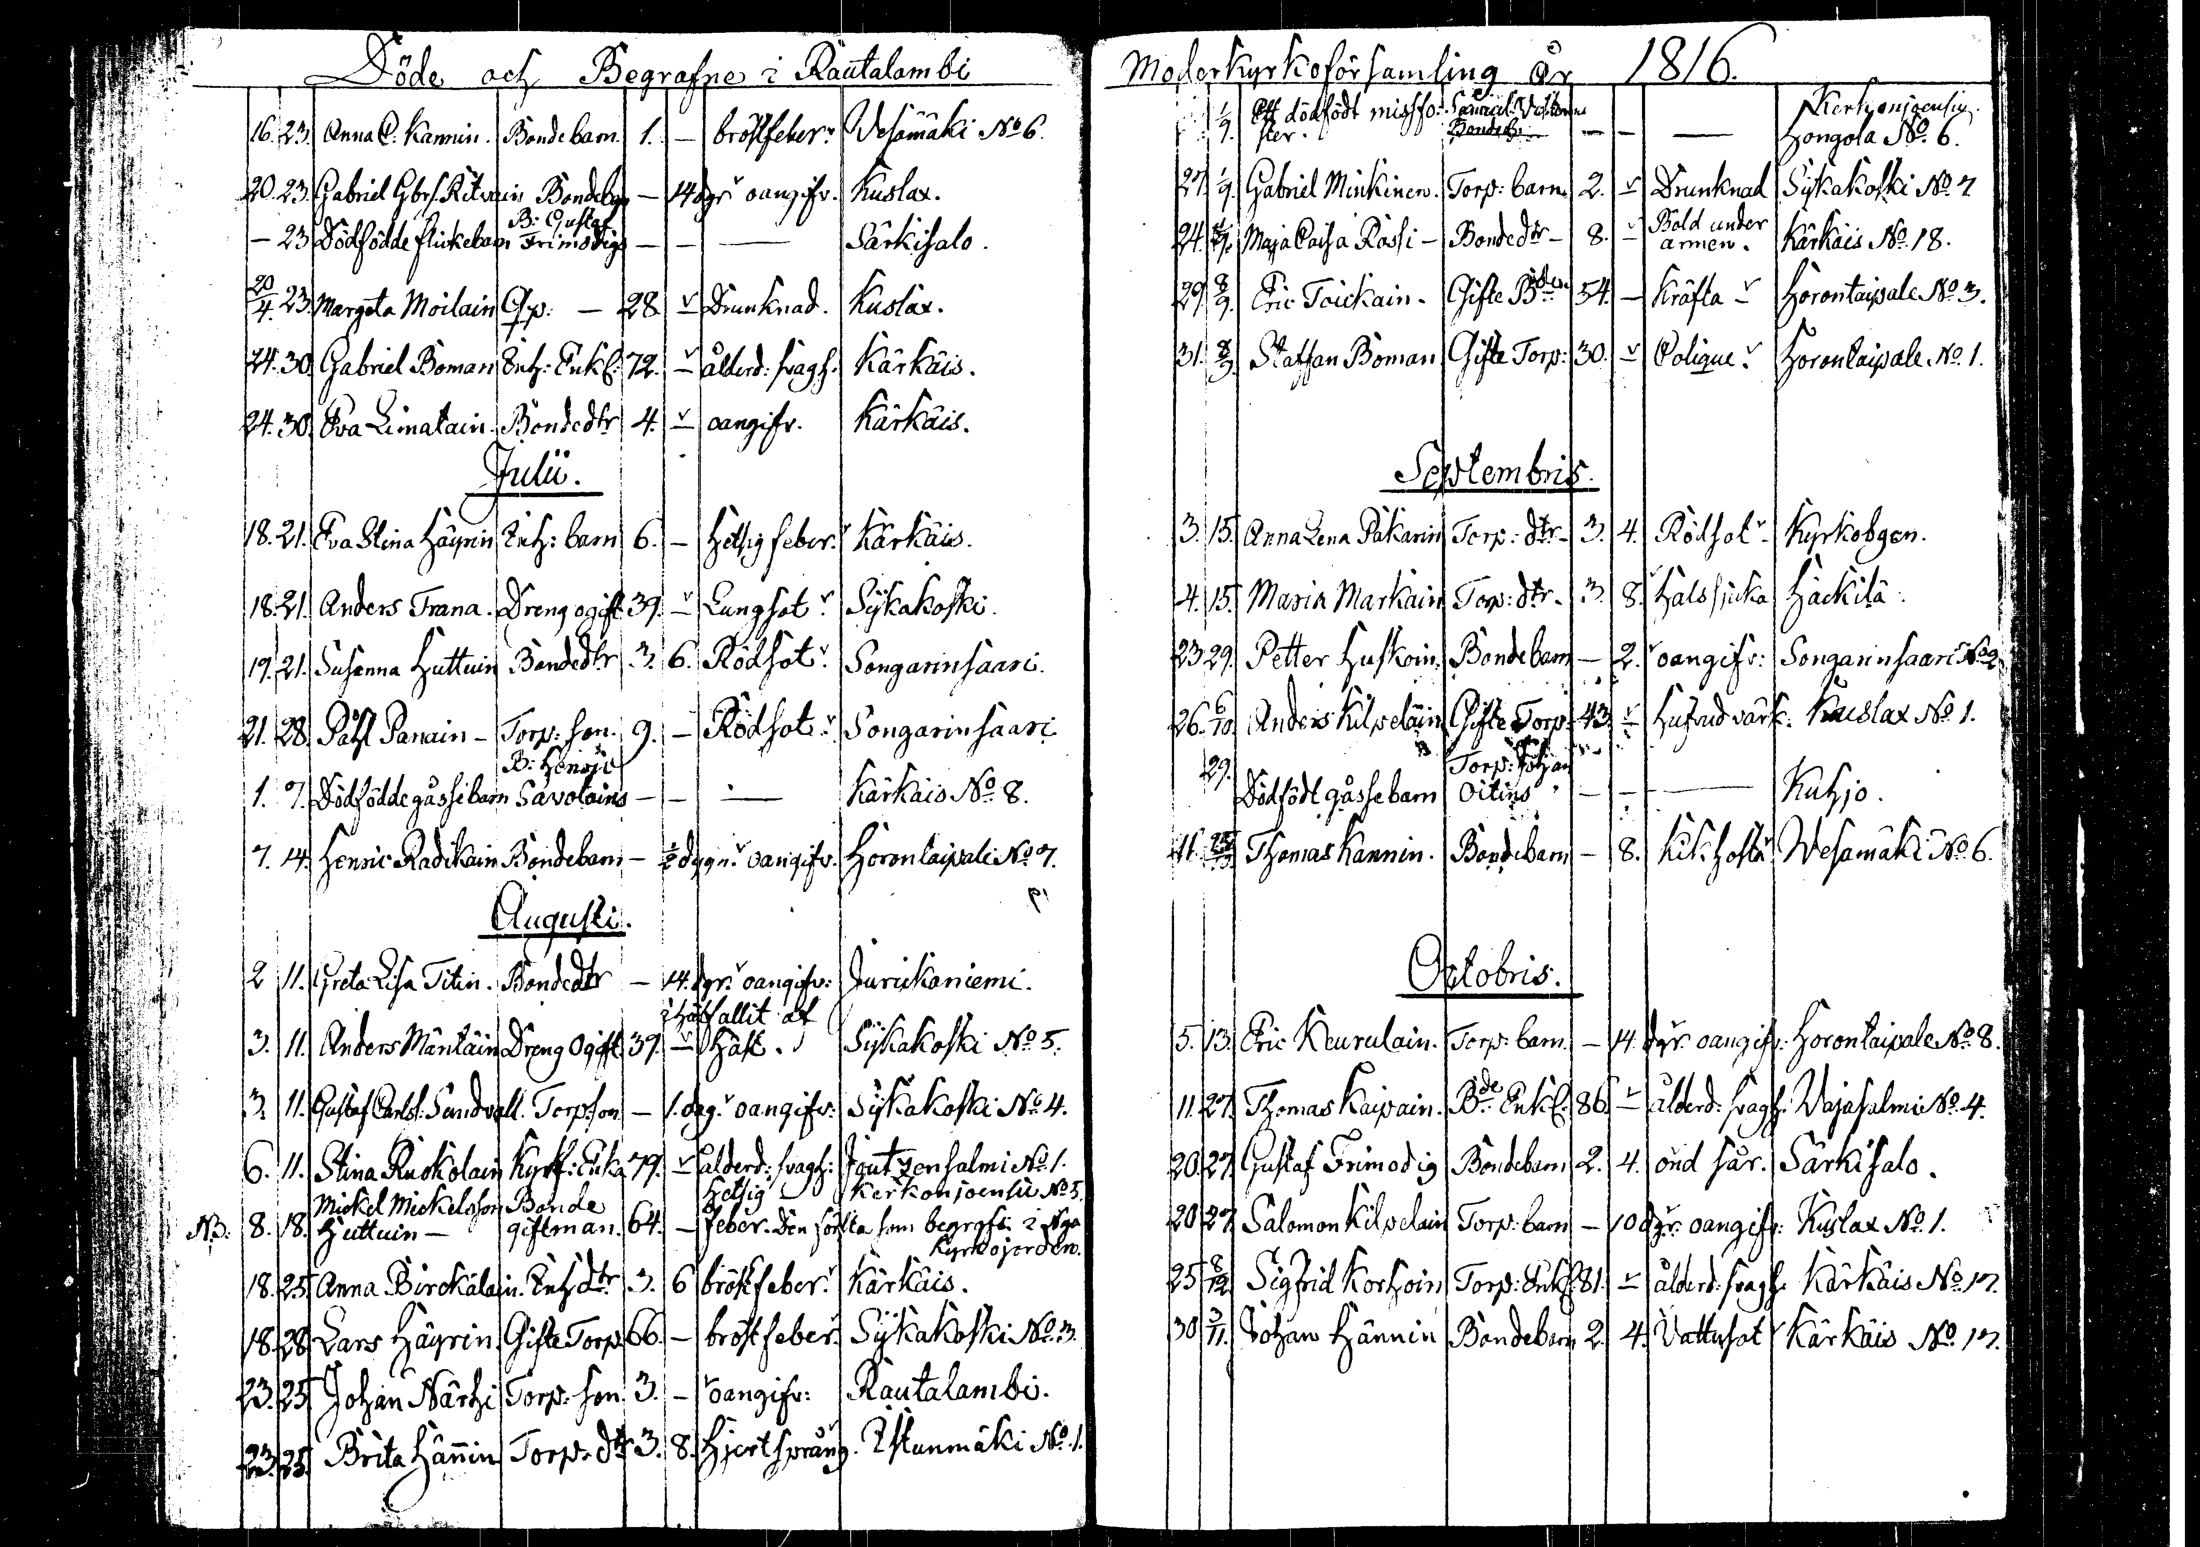 Döde och Begrafne i Rautalambi
16. 23. Anna C: Kannin. Bondebarn. 1. — bröstfeber. Wesamäki No 6.
20. 23. Gabriel Gbrs. Bondebn — 14 dgr oangifv. Kuslax.
B: Gustaf
— 23 Dödfödde flickebarn Frimodigs — — — Särkisalo.
20/4. 23. Margeta Moilain — 28 — Drunknad. Kuslax.
24. 30 Gabriel Boman Inh: Enkl: 72. — ålderd: svagh. Kärkäis.
24. 30. Eva Limatain. Bondedtr 4. — oangifv. Kärkäis.
Julii.
18. 21. Eva Stina Häyrin Inh: barn 6. — Hetsig feber. Kärkäis.
18. 21. Anders Trana. Dreng ogift 39. — Lungsot. Sykäkoski.
19. 21. Susanna Huttuin Bondedtr 3. 6. Rödsot. Songarinsaari.
21. 28. Påhl Panain — Torp: son. 9. — Rödsot. Songarinsaari
B: Henric
1. 7. Dödfödde gåssebarn Savolains — — — Kärkäis No 8.
7. 14. Henric Radikain Bondebarn — ½ dygn. oangifv. Horontaipale No 7.
Augusti.
2 11. Greta Lisa Titin. Bondedtr — 14. dgr. oangifv: Jurickaniemi.
ihjälfallit af
3. 11. Anders Mäntäin Dreng Ogift 39. — Häst. Sykäkoski No 5.
3. 11. Gustaf Carlss: Sandvall. Torp: son — 1. dag. oangifv: Sykäkoski No 4.
6. 11. Stina Ruokolain Kyrk: Enka 79. — ålderd: svagh: Joutzensalmi No 1.
Mickel Mickelsson Bonde Hetsig Kerkonjoensu No 5.
NB: 8. 18. Huttuin — giftman. 64. — feber. Den första som begrofs i Nya
Kyrkojorden.
18. 25 Anna Birckälain. Inh dtr. 3. 6 bröstfeber. Kärkäis.
18. 28 Lars Häyrin. Gifte Torp. 66. — bröstfeber. Sykäkoski No 3.
23. 25 Johan Närhi Torp: son. 3. — oangifv: Rautalambi.
23. 25. Brita Hännin Torp: dtr 3. 8. Hjertsprång. Istunmäki No 1.
Moderkyrkoförsamling år 1816.
1/9. Ett dödfödt missfo: Kerkonjoensu
ster. Bondeb: — — — Hongola No 6.
27. 1/9. Gabriel Minkinen. Torp: barn. 2. — Drunknad Sykäkoski No 7
24. Maja Caisa Rässi — Bondedtr — 8. — Båld under
armen. Kärkäis No 18.
29. 8/9. Eric Toickain. Gifte Bden 54. — Kräfta — Horontaipale No 3.
31. 8/9. Staffan Boman Gifte Torp: 30. — Colique. Horontaipale No 1.
Septembris.
3. 15. Anna Lena Pakarin Torp: dtr — 3. 4. Rödsot. Kyrkobyen.
4. 15. Maria Markain Torp: dtr. 3. 8. Halssjuka Häckilä.
23 29. Petter Huskoin. Bondebarn — 2. oangifv: Songarinsaari No 2
26. 6/10. Anders Kilpeläin Gifte Torp. 43 — Hufvudvärk. Kuslax No 1.
29. Torp: Johan
Dödfödt gåssebarn Oitins — — — Kuhjo.
11. Thomas Kannin. Bondebarn — 8. Kikhosta Wesamäki No 6.
Octobris.
5. 13. Eric Keurulain. Torp: barn. — 14. dgr. oangifv: Horontaipale No 8.
11. 27. Thomas Kaipain. Bde Enkl: 86. — ålderd: svagh. Vajasalmi No 4.
20. 27. Gustaf Frimodig Bondebarn 2. 4. ond sår. Särkisalo.
20 27. Salomon Kilpelain Torp: barn — 10 dgr. oangifv: Kuslax No 1.
25 8/12. Sigfrid Korhoin Torp: Enkl: 81. — ålderd: svagh. Kärkäis No 17.
30 3/11. Johan Hännin Bondebarn 2. 4. Vattusot Kärkäis No 17.